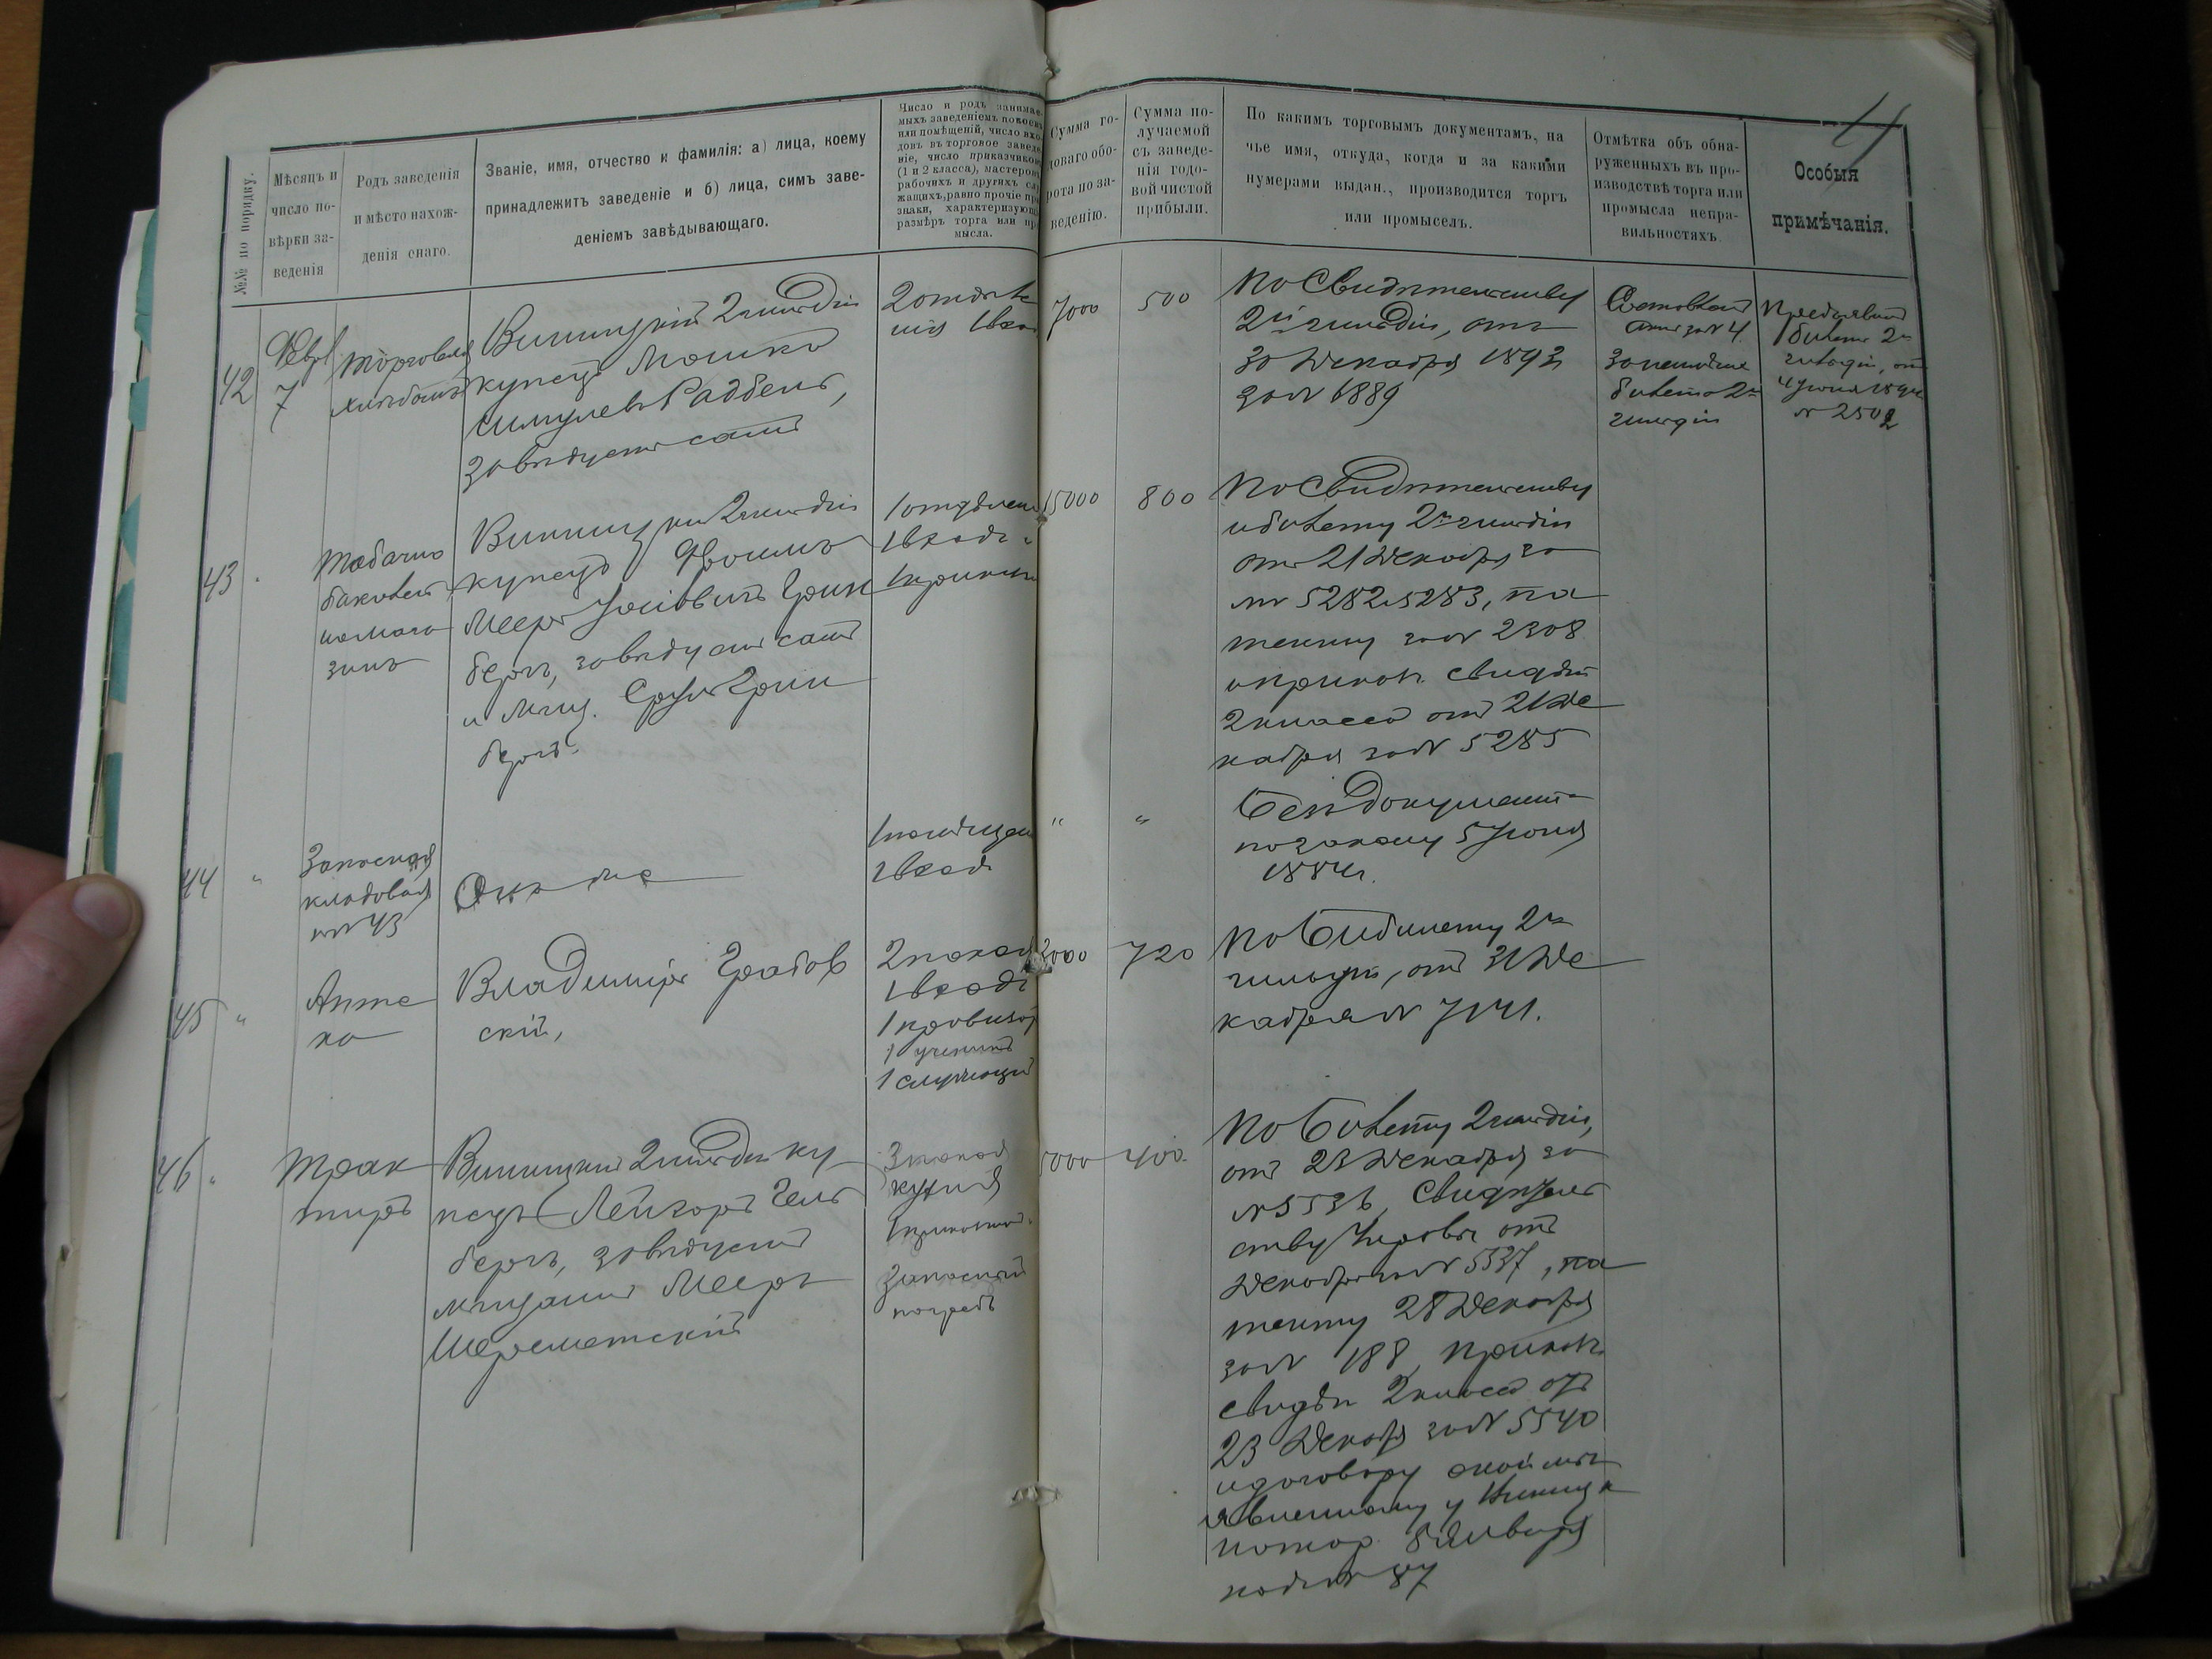 4
№№ по порядку.
Мѣсяцъ и
число по-
вѣрки за-
веденія
Родъ заведенія
и мѣсто нахож-
денія онаго.
Званіе, имя, отчество и фамилія: а) лица, коему
принадлежитъ заведеніе и б) лица, симъ заве-
деніемъ завѣдывающаго.
Число и родъ занимае-
мыхъ заведеніемъ покоевъ
или помѣщеній, число вхо-
довъ въ торговое заведе-
ніе, число приказчиковъ
(1 и 2 класса), мастеровъ
рабочихъ и другихъ слу-
жащихъ, равно прочіе при-
знаки, характеризующіе
размѣръ торга или про-
мысла.
Сумма го-
доваго обо-
рота по за-
веденію.
Сумма по-
лучаемой
съ заведе-
нія годо-
вой чистой
прибыли.
По какимъ торговымъ документамъ, на
чье имя, откуда, когда и за какими
нумерами выдан., производится торгъ
или промыселъ.
Отмѣтка объ обна-
руженныхъ въ про-
изводствѣ торга или
промысла непра-
вильностяхъ.
Особыя
примѣчанія.
42
Февр
7
Торговля
хлѣбомъ
Винницкій 2 гильдіи
купецъ Мошко
Шмулевъ
завѣдуетъ самъ
2 отдѣле
нія 1 вход
7000
500
По Свидѣтельству
2й гильдіи, отъ
30 Декабря 1893
за № 1889
Составленъ
актъ за № 4
за неимѣніе
билета 2й
гильдіи
Предъявилъ
билетъ 2й
гильдіи, от
4 Іюня 1894
№ 2502
43
Табачно
бакалей
ный мага
зинъ
Винницкій 2 гильдіи
купецъ Фроимъ
Мееръ Іосіовичъ Грин
бергъ, завѣдуетъ самъ
и мѣщ. Сруль Грин
бергъ.
1 отдѣлен
1 входъ
1 приказч
15000
800
По Свидѣтельству
и билету 2й гильдіи
отъ 21 Декабря за
№№ 5282 и 5283, па
тенту за № 2308
и приказ. свидѣт
2 класса отъ 21 Де
кабря за № 5285
44
"
Запасная
кладовая
къ № 43
Онъ же
1 помѣщен
1 входъ
"
"
Безъ документа
по закону 5 Іюня
1884 г.
45
"
Апте
ка
Владиміръ Грабов
скій,
2 покоя
1 входъ
1 провизор
1 ученикъ
1 служащій
3000
720
По Билету 2й
гильдіи, отъ 31 Де
кабря № 7141.
46
"
Трак
тиръ
Винницкій 2 гильдіи ку
пецъ Лейзоръ Гель
бергъ, завѣдуетъ
мѣщанинъ Мееръ
Шереметскій
3 покоя
кухня
1 приказчикъ
Запасный
погребъ
5000
400
По Билету 2 гильдіи,
отъ 23 Декабря за
№ 5536, Свидѣтель
ству отъ
Декабря за № 5537, па
тенту 28 Декабря
за № 188, приказ.
свидѣт 2 класса отъ
23 Декабря за № 5540
и договору
явленному у Винниц
нотар. 8 Января
подъ № 87